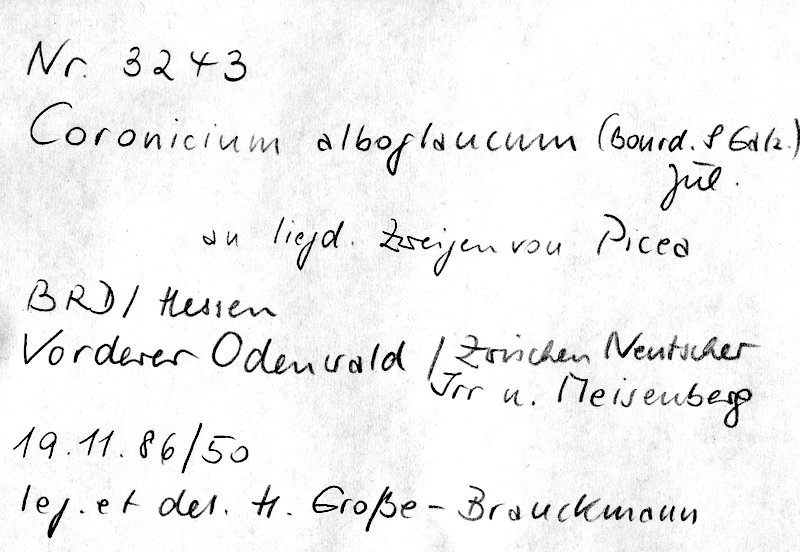 Nr. 3243
Coronicium alboglaucum (Bourd. & Galz.)
Jül.
an liegd. Zweigen von Picea
BRD/ Hessen
Vorderer Odenwald / Zwischen Neutscher
Irr u. Meisenberg
19.11.86/50
leg. et det. H. Große-Brauckmann